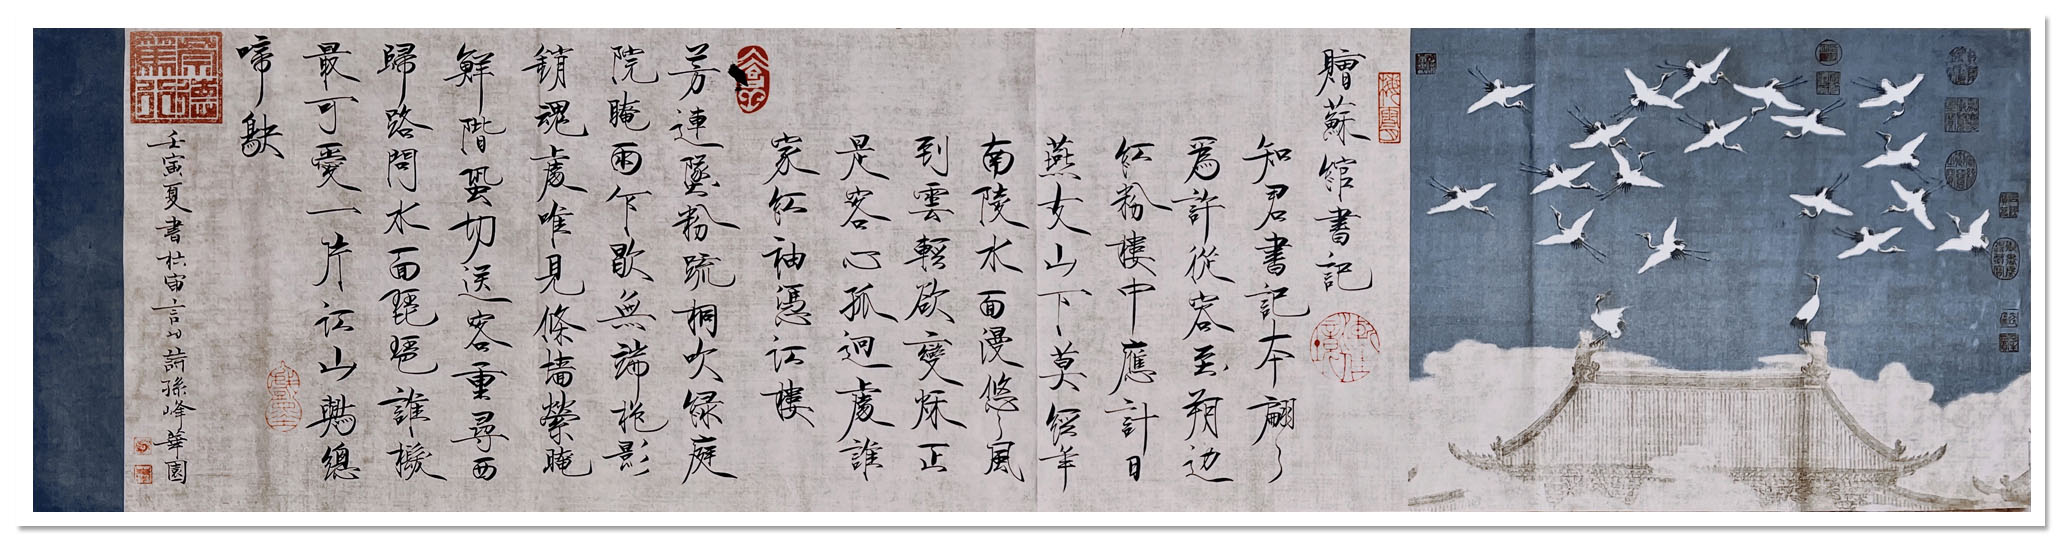 贈蘇綰書記
知君書記本翩〻
爲許從容至朔边
紅粉樓中應計日
燕女山下莫經年
南陵水面漫悠〻風
到雲輕欲變秌正
是客心孤迥處誰
家紅袖憑江樓
芳連墜粉疏桐吹綠庭
院晻雨乍歇無端抱影
銷魂處唯見條墻縈晻
鮮階蛩切送客重尋西
歸路問水面琵琶誰撥
最可愛一片江山總
啼鴂
壬寅夏書杜审言詩孫峰華園